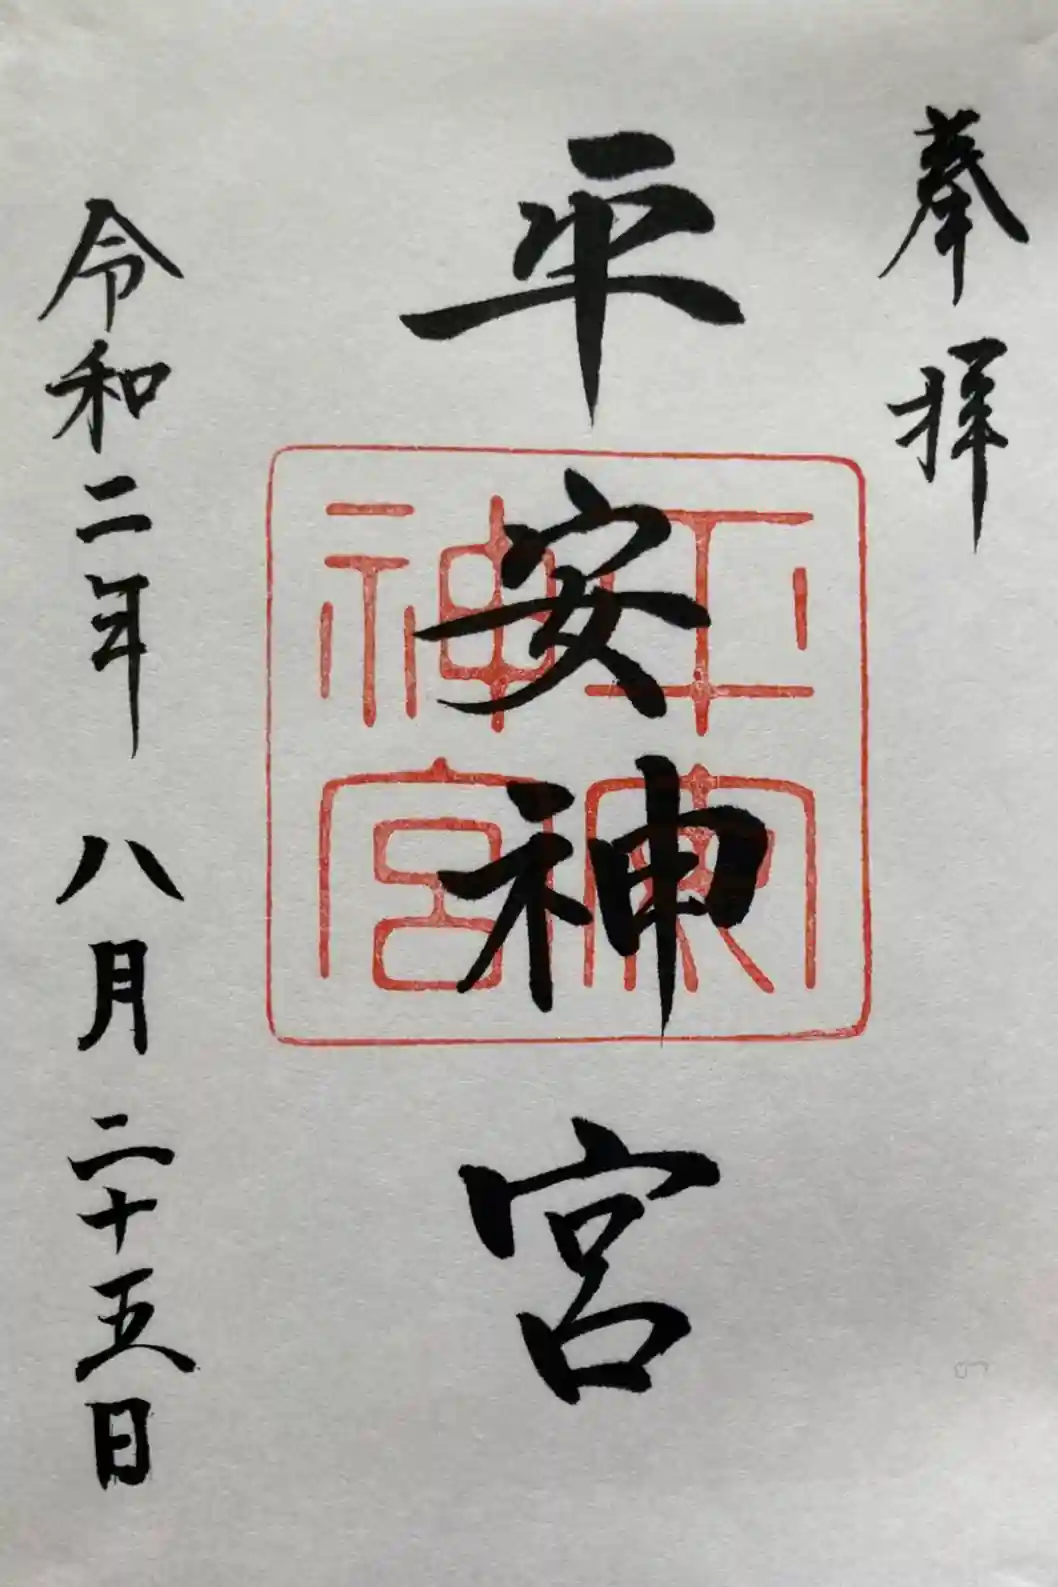 奉拝
平安神宮
平安
神宮
令和二年 八月 二十五日